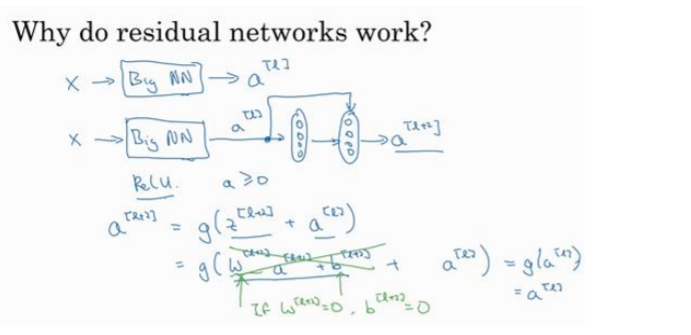 Why do residual networks work?
X → Big NN → a^[l]
a^[l]
X → Big NN → a^[l+2]
ReLU. a ≥ 0
a^[l+2] = g(z^[l+2] + a^[l])
= g(W^[l+2] a^[l+1] + b^[l+2] + a^[l]) = g(a^[l])
= a^[l]
If W^[l+2] = 0, b^[l+2] = 0